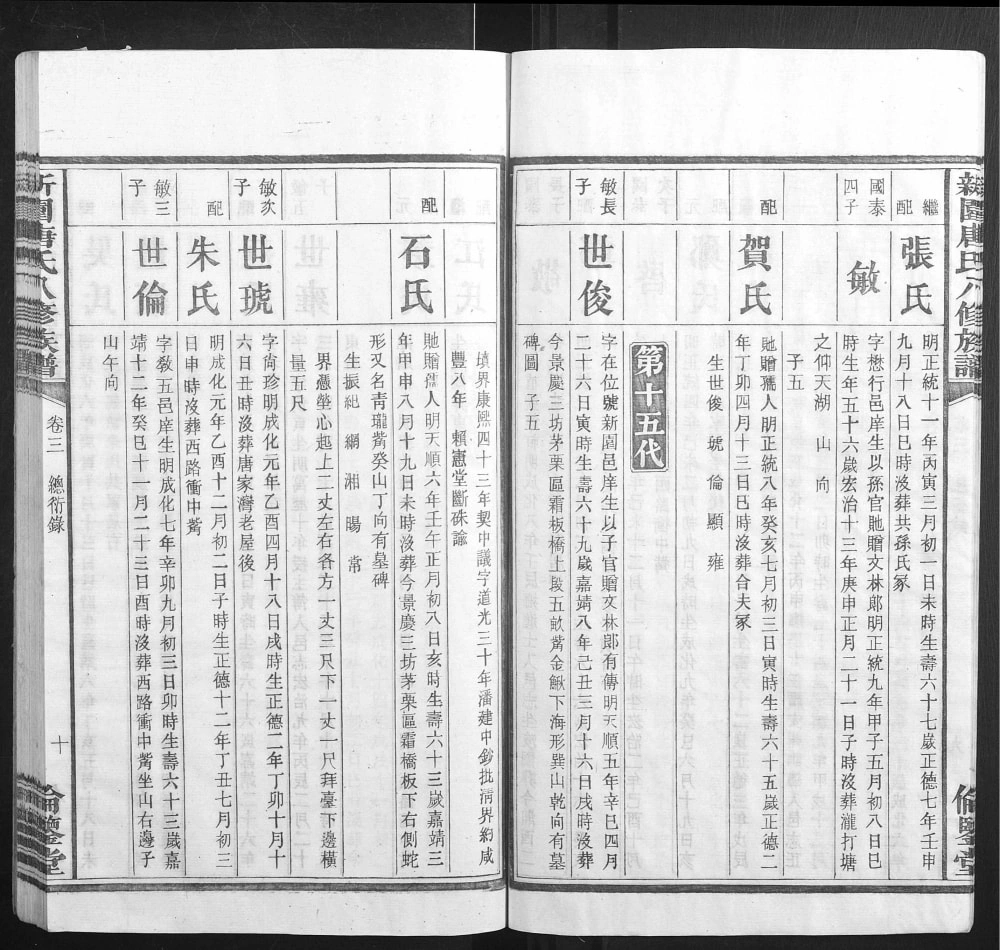 繼配
張氏
明正統十一年丙寅三月初一日未時生壽六十七歲正德七年壬申
九月十八日巳時沒葬共孫氏冢
國泰四子
敏
字懋行邑庠生以孫官貤贈文林郎明正統九年甲子五月初八日巳
時生年五十六歲宏治十三年庚申正月二十一日子時沒葬瀧打塘
之仰天湖 山 向
子五
配
賀氏
貤贈孺人明正統八年癸亥七月初三日寅時生壽六十五歲正德二
年丁卯四月十三日巳時沒葬合夫冢
生世俊 琥 倫 顯 雍
第十五代
敏長子
世俊
字在位號新園邑庠生以子官贈文林郎有傳明天順五年辛巳四月
二十六日寅時生壽六十九歲嘉靖八年己丑三月十六日戌時沒葬
今景慶三坊茅栗區霜板橋上段五畝嵩金鰍下海形巽山乾向有墓
碑圖 子五
墳界康熙四十三年契中議字道光三十年潘建中鈔批淸界約咸
豐八年 賴憲堂斷硃諭
配
石氏
貤贈孺人明天順六年壬午正月初八日亥時生壽六十三歲嘉靖三
年甲申八月十九日未時沒葬今景慶三坊茅栗區霜橋板下右側蛇
形又名靑瓏嵩癸山丁向有墓碑
生振紀 綱 湘 暘 常
界憑塋心起上二丈左右各方一丈三尺下一丈一尺拜臺下邊橫
量五尺
敏次子
世琥
字尙珍明成化元年乙酉四月十八日戌時生正德二年丁卯十月十
六日丑時沒葬唐家灣老屋後
配
朱氏
明成化元年乙酉十二月初二日子時生正德十二年丁丑七月初三
日申時沒葬西路衝中嵩
敏三子
世倫
字敎五邑庠生明成化七年辛卯九月初三日卯時生壽六十三歲嘉
靖十二年癸巳十一月二十三日酉時沒葬西路衝中嵩坐山右邊子
山午向
新園唐氏八修族譜
卷三 總衍錄
十
倫鑒堂